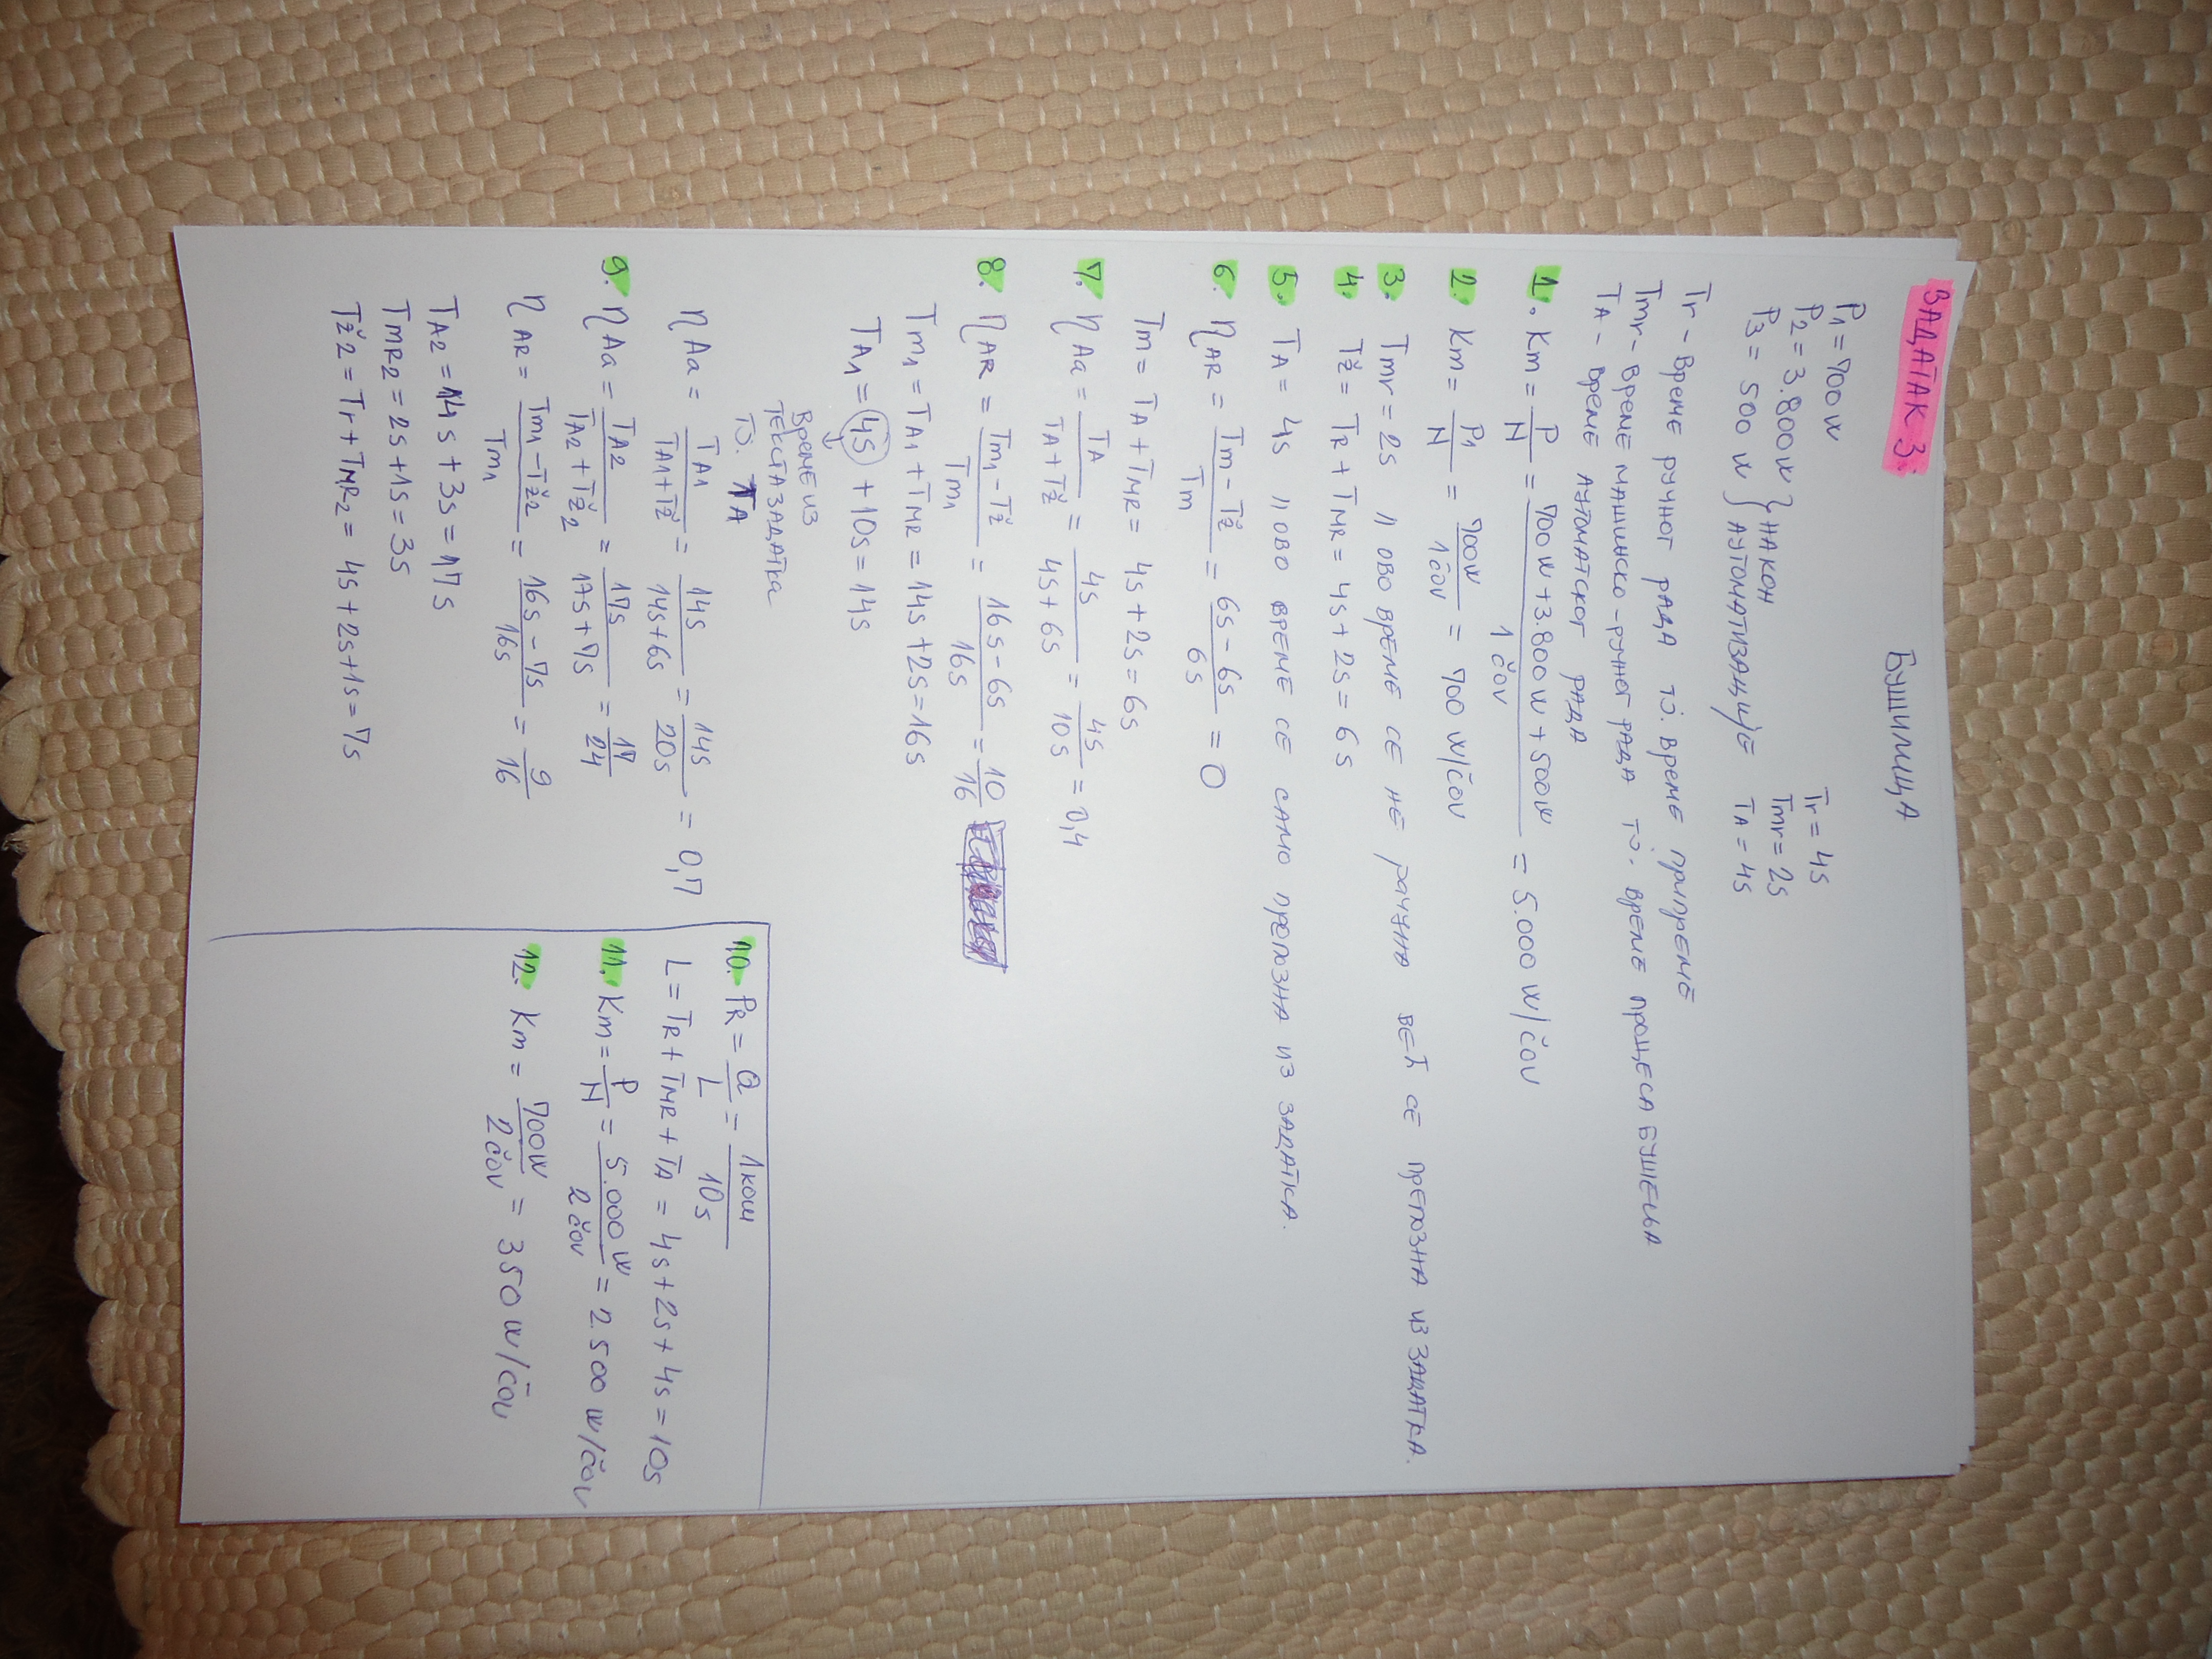 ЗАДАТАК 3.
БУШИЛИЦА
P₁ = 700W
P₂ = 3.800W } НАКОН
P₃ = 500 W } АУТОМАТИЗАЦИЈЕ
Tr = 4s
Tmr = 2s
TA = 4s
Tr - време ручног рада тј. време припреме
Tmr - време машинско-ручног рада тј. време процеса бушења
TA - време аутоматског рада
1. Km = P/N = (700W + 3.800W + 500W)/(1 čov) = 5.000 W/čov
2. Km = P₁/N = 700W/1čov = 700 W/čov
3. Tmr = 2s // ово време се не рачуна већ се препозна из задатка.
4. Tž = TR + TMR = 4s + 2s = 6s
5. TA = 4s // ово време се само препозна из задатка.
6. ηAR = (Tm - Tž)/Tm = (6s - 6s)/6s = 0
Tm = TA + TMR = 4s + 2s = 6s
7. ηAa = TA/(TA + Tž) = 4s/(4s + 6s) = 4s/10s = 0,4
8. ηAR = (Tm₁ - Tž)/Tm₁ = (16s - 6s)/16s = 10/16
Tm₁ = TA₁ + TMR = 14s + 2s = 16s
TA₁ = 4s + 10s = 14s
ВРЕМЕ ИЗ
ТЕКСТА ЗАДАТКА
ТЈ. TA
ηAa = TA₁/(TA₁ + Tž) = 14s/(14s + 6s) = 14s/20s = 0,7
9. ηAa = TA₂/(TA₂ + Tž₂) = 17s/(17s + 7s) = 17/24
ηAR = (Tm₁ - Tž₂)/Tm₁ = (16s - 7s)/16s = 9/16
TA₂ = 14s + 3s = 17s
TMR₂ = 2s + 1s = 3s
Tž₂ = Tr + TMR₂ = 4s + 2s + 1s = 7s
10. PR = Q/L = 1ком/10s
L = TR + TMR + TA = 4s + 2s + 4s = 10s
11. Km = P/N = 5.000W/2čov = 2.500 W/čov
12. Km = 700W/2čov = 350 W/čov